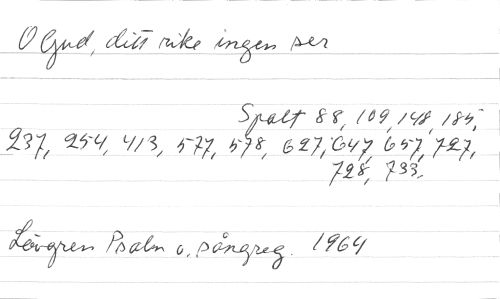 O Gud, ditt rike ingen ser
Spalt 88, 109, 148, 185,
237, 254, 413, 577, 578, 627, 647, 657, 727,
728, 733.
Lövgren Psalm o. sångreg. 1964